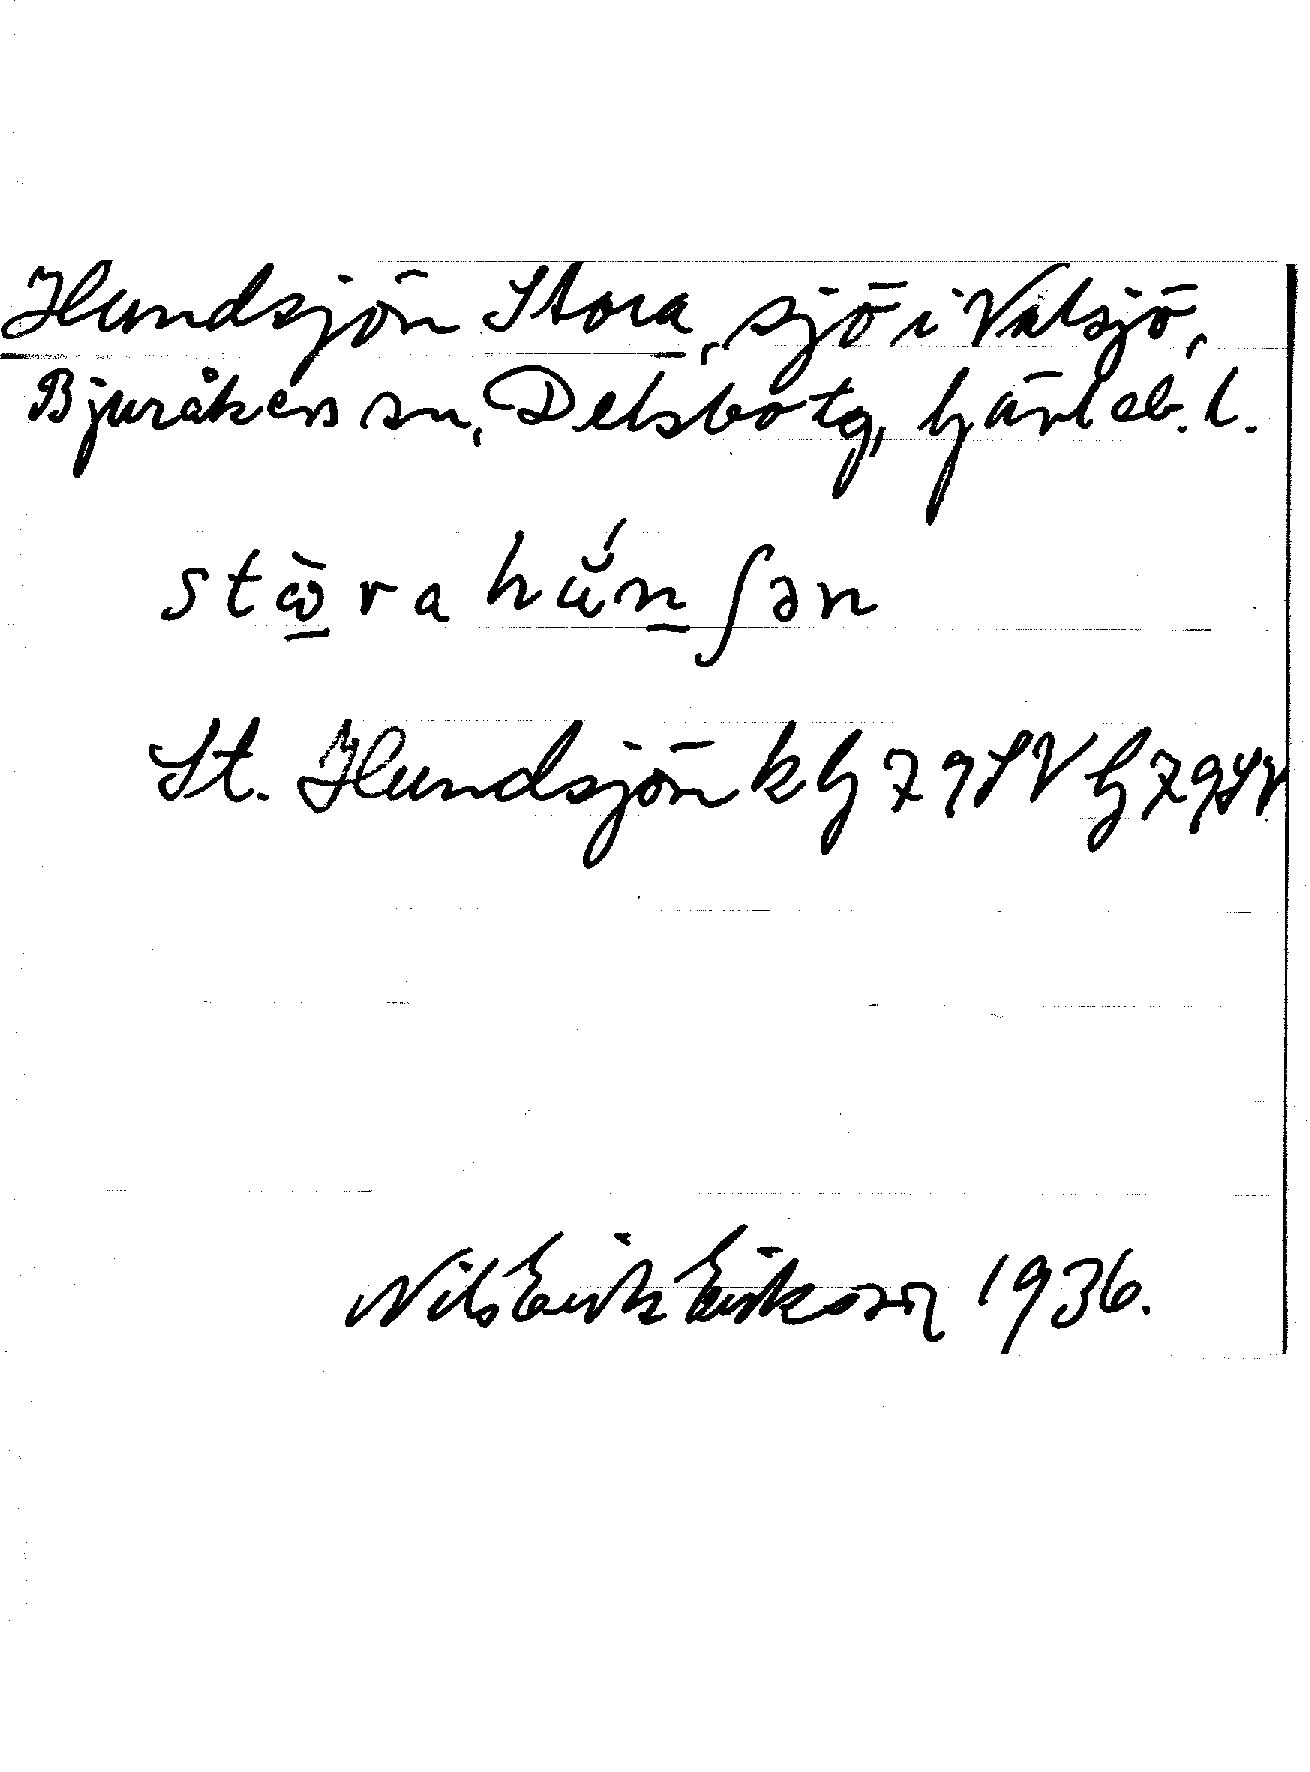 Hundsjön Stora, sjö i Valsjö,
Bjuråkers sn, Delsbo tg, Gävleb. l.
stὼ̠ra hŭ́n̠ʃən
St. Hundsjön k G 79 SV G 79 SV
Nils Erik Erikson 1936.